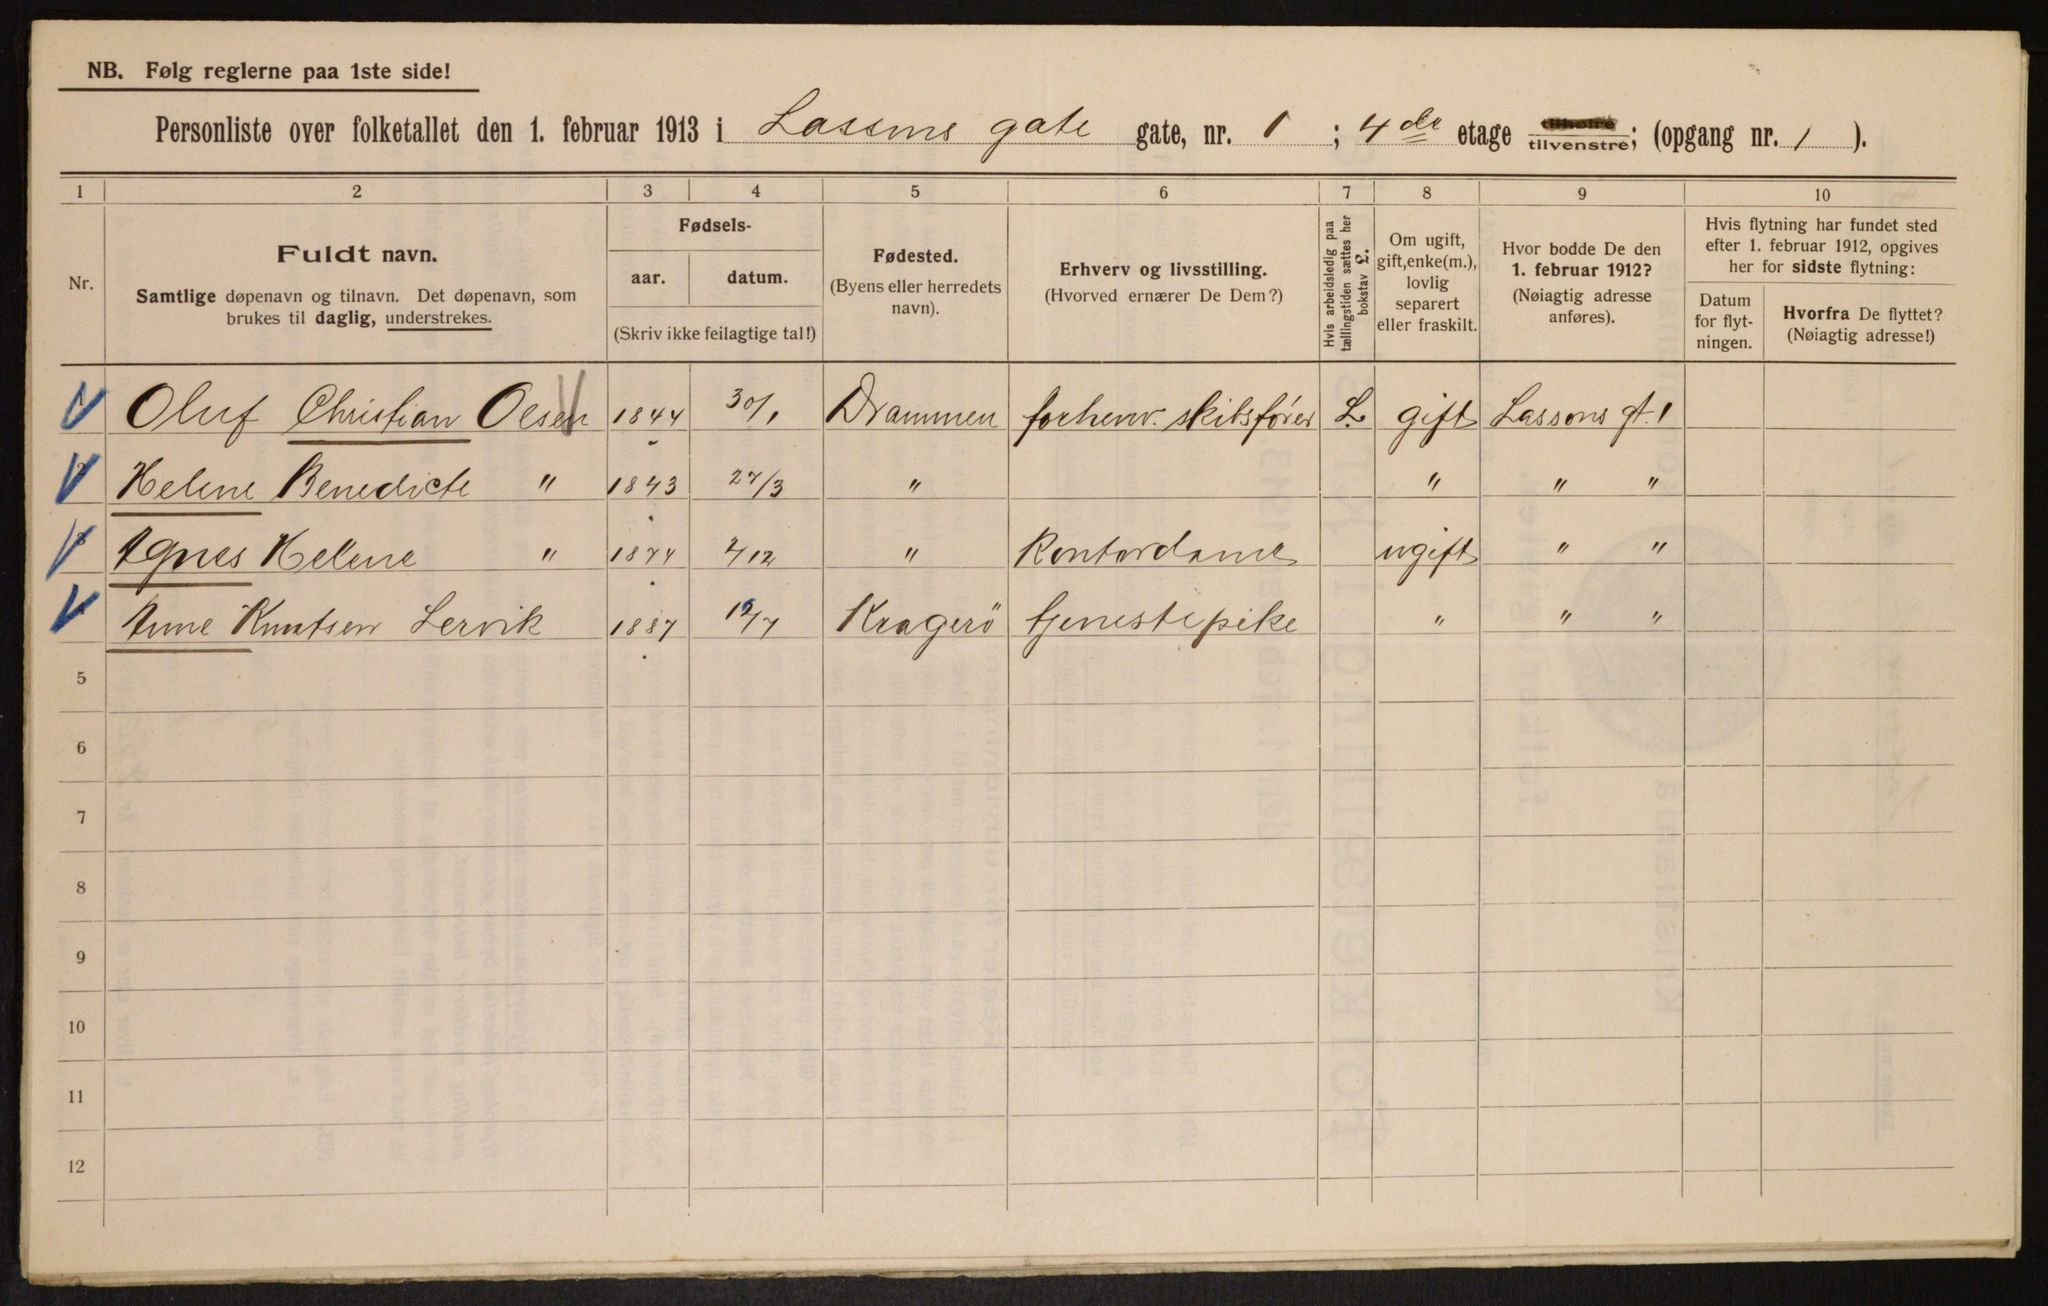 NB. Følg reglerne paa 1ste side!
Personliste over folketallet den 1. februar 1913 i Lassons gate gate, nr. 1 ; 4de etage tilhøire tilvenstre; (opgang nr. 1 ).
1 2 3 4 5 6 7 8 9 10
Nr.
Fuldt navn.
Samtlige døpenavn og tilnavn. Det døpenavn, som
brukes til daglig, understrekes.
Fødsels-
aar. datum.
(Skriv ikke feilagtige tal!)
Fødested.
(Byens eller herredets
navn).
Erhverv og livsstilling.
(Hvorved ernærer De Dem?)
Hvis arbeidsledig paa
tællingstiden sættes her
bokstav L.
Om ugift,
gift, enke(m.),
lovlig
separert
eller fraskilt.
Hvor bodde De den
1. februar 1912?
(Nøiagtig adresse
anføres).
Hvis flytning har fundet sted
efter 1. februar 1912, opgives
her for sidste flytning:
Datum
for flyt-
ningen.
Hvorfra De flyttet?
(Nøiagtig adresse!)
1 Oluf Christian Olsen 1844 30/1 Drammen forhenv. skibsfører L. gift Lassons gt. 1
2 Helene Benedicte " 1843 27/3 " " " "
3 Agnes Helene " 1874 2/12 " Kontordame ugift " "
4 Anne Knutsen Lervik 1887 12/7 Kragerö tjenestepike " " "
5
6
7
8
9
10
11
12